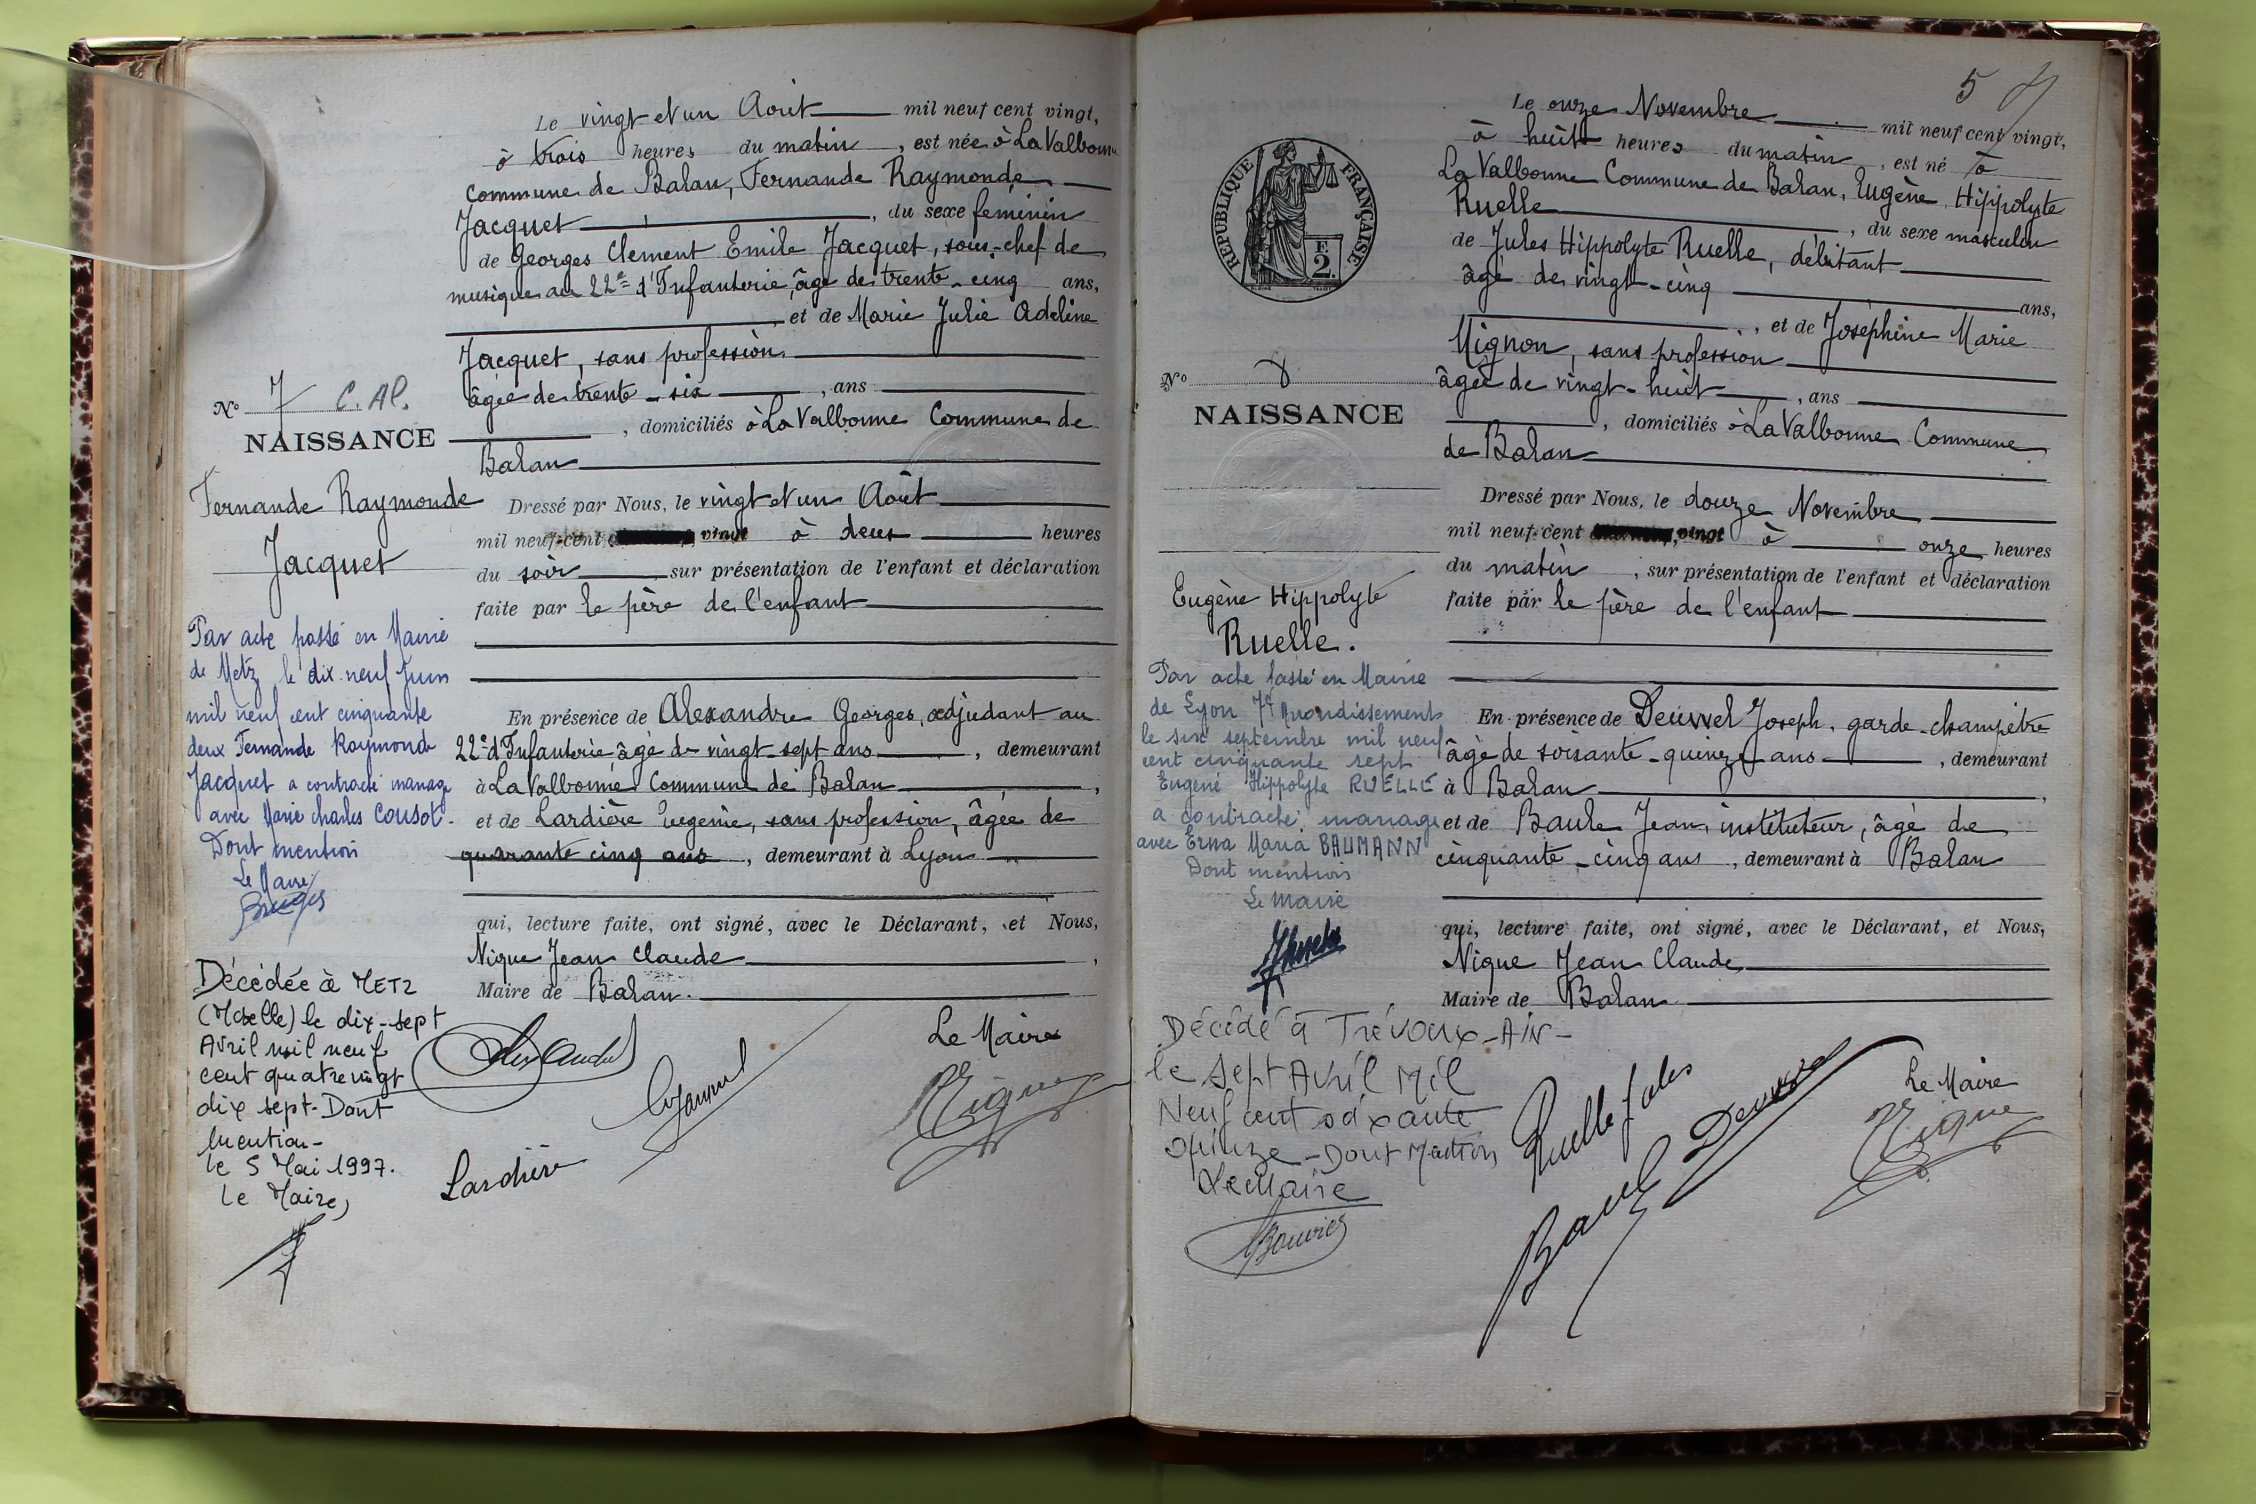 Le vingt et un Août mil neuf cent vingt,
à trois heures du matin, est née à La Valbonne
Commune de Balan, Fernande Raymonde
Jacquet, du sexe féminin
de Georges Clément Emile Jacquet, sous-chef de
musique au 22e d'Infanterie, âgé de trente-cinq ans,
et de Marie Julie Adeline
Jacquet, sans profession
âgée de trente-six, ans
, domiciliés à La Valbonne Commune de
Balan
Dressé par Nous, le vingt et un Août
mil neuf cent vingt à deux heures
du soir, sur présentation de l'enfant et déclaration
faite par le père de l'enfant
En présence de Alexandre Georges, adjudant au
22e d'Infanterie âgé de vingt-sept ans, demeurant
à La Valbonne Commune de Balan,
et de Lardière Eugénie, sans profession, âgée de
quarante cinq ans, demeurant à Lyon
qui, lecture faite, ont signé, avec le Déclarant, et Nous,
Nique Jean Claude,
Maire de Balan.
Le Maire
Nique
Lardière
No 7 C. Al.
NAISSANCE
Fernande Raymonde
Jacquet
Par acte passé en Mairie
de Metz le dix-neuf Juin
mil neuf cent cinquante
deux Fernande Raymonde
Jacquet a contracté mariage
avec Marie Charles COUSOT.
Dont mention
Le Maire
Décédée à METZ
(Moselle) le dix-sept
Avril mil neuf
cent quatre vingt
dix sept-Dont
mention-
le 5 Mai 1997.
Le Maire,
5
Le onze Novembre mil neuf cent vingt,
à huit heures du matin, est né à
La Valbonne Commune de Balan, Eugène Hippolyte
Ruelle, du sexe masculin
de Jules Hippolyte Ruelle, débitant
âgé de vingt-cinq ans,
, et de Joséphine Marie
Mignon, sans profession
âgée de vingt-huit, ans
, domiciliés à La Valbonne Commune
de Balan
Dressé par Nous, le douze Novembre
mil neuf cent vingt à onze heures
du matin, sur présentation de l'enfant et déclaration
faite par le père de l'enfant
En présence de Deuwel Joseph, garde-champêtre
âgé de soixante-quinze ans, demeurant
à Balan,
et de Baule Jean, instituteur, âgé de
cinquante-cinq ans, demeurant à Balan
qui, lecture faite, ont signé, avec le Déclarant, et Nous,
Nique Jean Claude
Maire de Balan
Ruelle Jules
Le Maire
Nique
RÉPUBLIQUE FRANÇAISE
E
2.
No 8
NAISSANCE
Eugène Hippolyte
Ruelle.
Par acte passé en Mairie
de Lyon 7e arrondissement
le six septembre mil neuf
cent cinquante sept
Eugène Hippolyte RUELLE
a contracté mariage
avec Erna Maria BAUMANN
Dont mention
Le Maire
Décédé à Trévoux-AIN-
le sept Avril Mil
Neuf cent soixante
quinze-Dont Mention
Le Maire